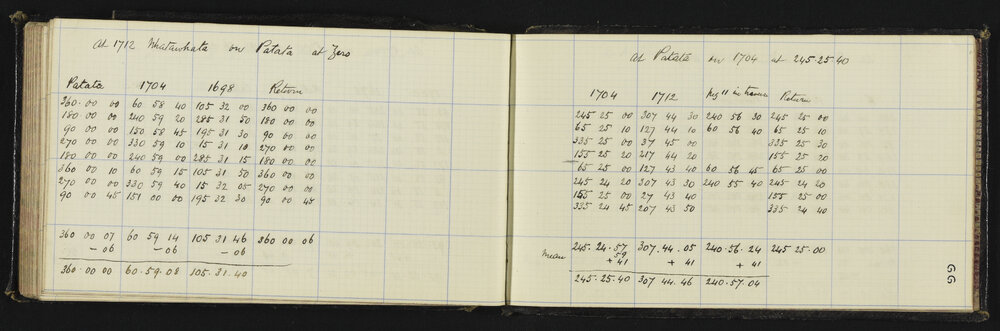 At 1712 Whatawhata on Patata at Zero
Patata 1704 1698 Return
360 00 00 60 58 40 105 32 00 360 00 00
180 00 00 240 59 20 285 31 50 180 00 00
90 00 00 150 58 45 195 31 30 90 00 00
270 00 00 330 59 10 15 31 10 270 00 00
180 00 00 240 59 00 285 31 15 180 00 00
360 00 10 60 59 15 105 31 50 360 00 00
270 00 00 330 59 40 15 32 05 270 00 00
90 00 45 151 00 00 195 32 30 90 00 45
360 00 07 60 59 14 105 31 46 360 00 06
- 06 - 06 - 06
360 00 00 60.59.08 105.31.40
At Patata on 1704 at 245.25.40
1704 1712 peg 11 in Return
245 25 00 307 44 30 240 56 30 245 25 00
65 25 10 127 44 10 60 56 40 65 25 10
335 25 00 37 45 00 335 25 30
155 25 20 217 44 20 155 25 20
65 25 00 127 43 40 60 56 45 65 25 00
245 24 20 307 43 30 240 55 40 245 24 20
155 25 00 27 43 40 155 25 00
335 24 45 207 43 50 335 24 40
mean 245.24.57 307.44.05 240.56.24 245 25.00
59
+ 41 + 41 + 41
245.25.40 307 44.46 240.57.04
GG